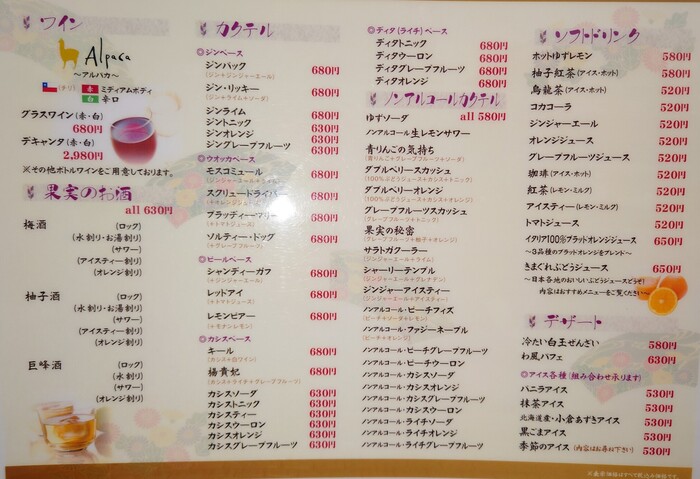 ワイン
Alpaca
～アルパカ～
(チリ) 赤 ミディアムボディ
白 辛口
グラスワイン(赤・白)
680円
デキャンタ(赤・白)
2,980円
※その他ボトルワインをご用意しております。
果実のお酒
all 630円
梅酒 (ロック)
(水割り・お湯割り)
(サワー)
(アイスティー割り)
(オレンジ割り)
柚子酒 (ロック)
(水割り・お湯割り)
(サワー)
(アイスティー割り)
(オレンジ割り)
巨峰酒 (ロック)
(水割り)
(サワー)
(オレンジ割り)
カクテル
◎ジンベース
ジンバック 680円
(ジン+ジンジャーエール)
ジン・リッキー 680円
(ジン+ライム+ソーダ)
ジンライム 680円
ジントニック 630円
ジンオレンジ 630円
ジングレープフルーツ 630円
◎ウオッカベース
モスコミュール 680円
スクリュードライバー 680円
ブラッディーマリー 680円
(+トマトジュース)
ソルティー・ドッグ 680円
(+グレープフルーツ)
◎ビールベース
シャンディーガフ 680円
(+ジンジャーエール)
レッドアイ 680円
(+トマトジュース)
レモンビアー 680円
(+モチレモン)
◎カシスベース
キール 680円
(カシス+白ワイン)
楊貴妃 680円
(カシス+ライチ+グレープフルーツ)
カシスソーダ 630円
カシストニック 630円
カシスティー 630円
カシスウーロン 630円
カシスオレンジ 630円
カシスグレープフルーツ 630円
◎ディタ(ライチ)ベース
ディタトニック 680円
ディタウーロン 680円
ディタグレープフルーツ 680円
ディタオレンジ 680円
ノンアルコールカクテル
ゆずソーダ all 580円
ノンアルコール 生レモンサワー
青りんごの気持ち
(青りんご+グレープフルーツ+ソーダ)
ダブルベリースカッシュ
(100%ぶどうジュース+カシス+トニック)
ダブルベリーオレンジ
(100%ぶどうジュース+カシス+オレンジ)
グレープフルーツスカッシュ
(グレープフルーツ+トニック)
果実の秘蜜
(グレープフルーツ+柚子+オレンジ)
サラトガクーラー
(ジンジャーエール+ライム)
シャーリーテンブル
(ジンジャーエール+グレナデン)
ジンジャーアイスティー
(ジンジャーエール+アイスティー)
ノンアルコール・ピーチフィズ
(ピーチ+ソーダ+レモン)
ノンアルコール・ファジーネーブル
(ピーチ+オレンジ)
ノンアルコール・ピーチグレープフルーツ
ノンアルコール・ピーチウーロン
ノンアルコール・カシスソーダ
ノンアルコール・カシスオレンジ
ノンアルコール・カシスグレープフルーツ
ノンアルコール・カシスウーロン
ノンアルコール・ライチソーダ
ノンアルコール・ライチオレンジ
ノンアルコール・ライチグレープフルーツ
ソフトドリンク
ホットゆずレモン 580円
柚子紅茶(アイス・ホット) 580円
烏龍茶(アイス・ホット) 520円
コカコーラ 520円
ジンジャーエール 520円
オレンジジュース 520円
グレープフルーツジュース 520円
珈琲(アイス・ホット) 520円
紅茶(レモン・ミルク) 520円
アイスティー(レモン・ミルク) 520円
トマトジュース 520円
イタリア100%ブラッドオレンジジュース 650円
～3品種のブラッドオレンジをブレンド～
きまぐれぶどうジュース 650円
～日本各地のおいしいぶどうジュースどうぞ!
内容はおすすめメニューをご覧ください～
デザート
冷たい白玉ぜんざい 580円
わ風パフェ 630円
◎アイス各種(組み合わせ承ります)
バニラアイス 530円
抹茶アイス 530円
北海道産・小倉あずきアイス 530円
黒ごまアイス 530円
季節のアイス(内容はお尋ね下さい) 530円
※表示価格はすべて税込み価格です。